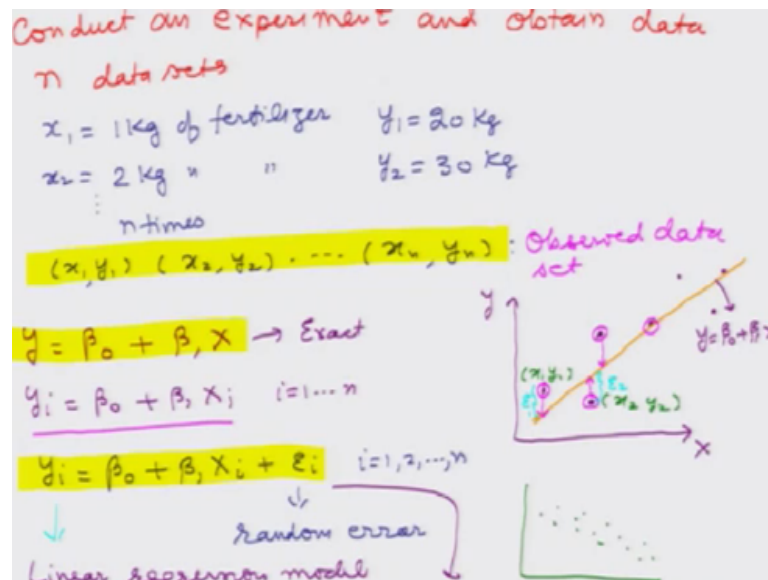 Conduct an experiment and obtain data
n data sets
x₁ = 1 kg of fertilizer y₁ = 20 kg
x₂ = 2 kg " " y₂ = 30 kg
⋮
n times
(x₁, y₁) (x₂, y₂) . .... (xₙ, yₙ) : Observed data set
y = β₀ + β₁ X → Exact
yᵢ = β₀ + β₁ Xᵢ i = 1 ... n
yᵢ = β₀ + β₁ Xᵢ + εᵢ i = 1, 2, ..., n
random error
Linear regression model
y
y = β₀ + β₁ X
(x₁ y₁)
ε₁
ε₂
(x₂ y₂)
X